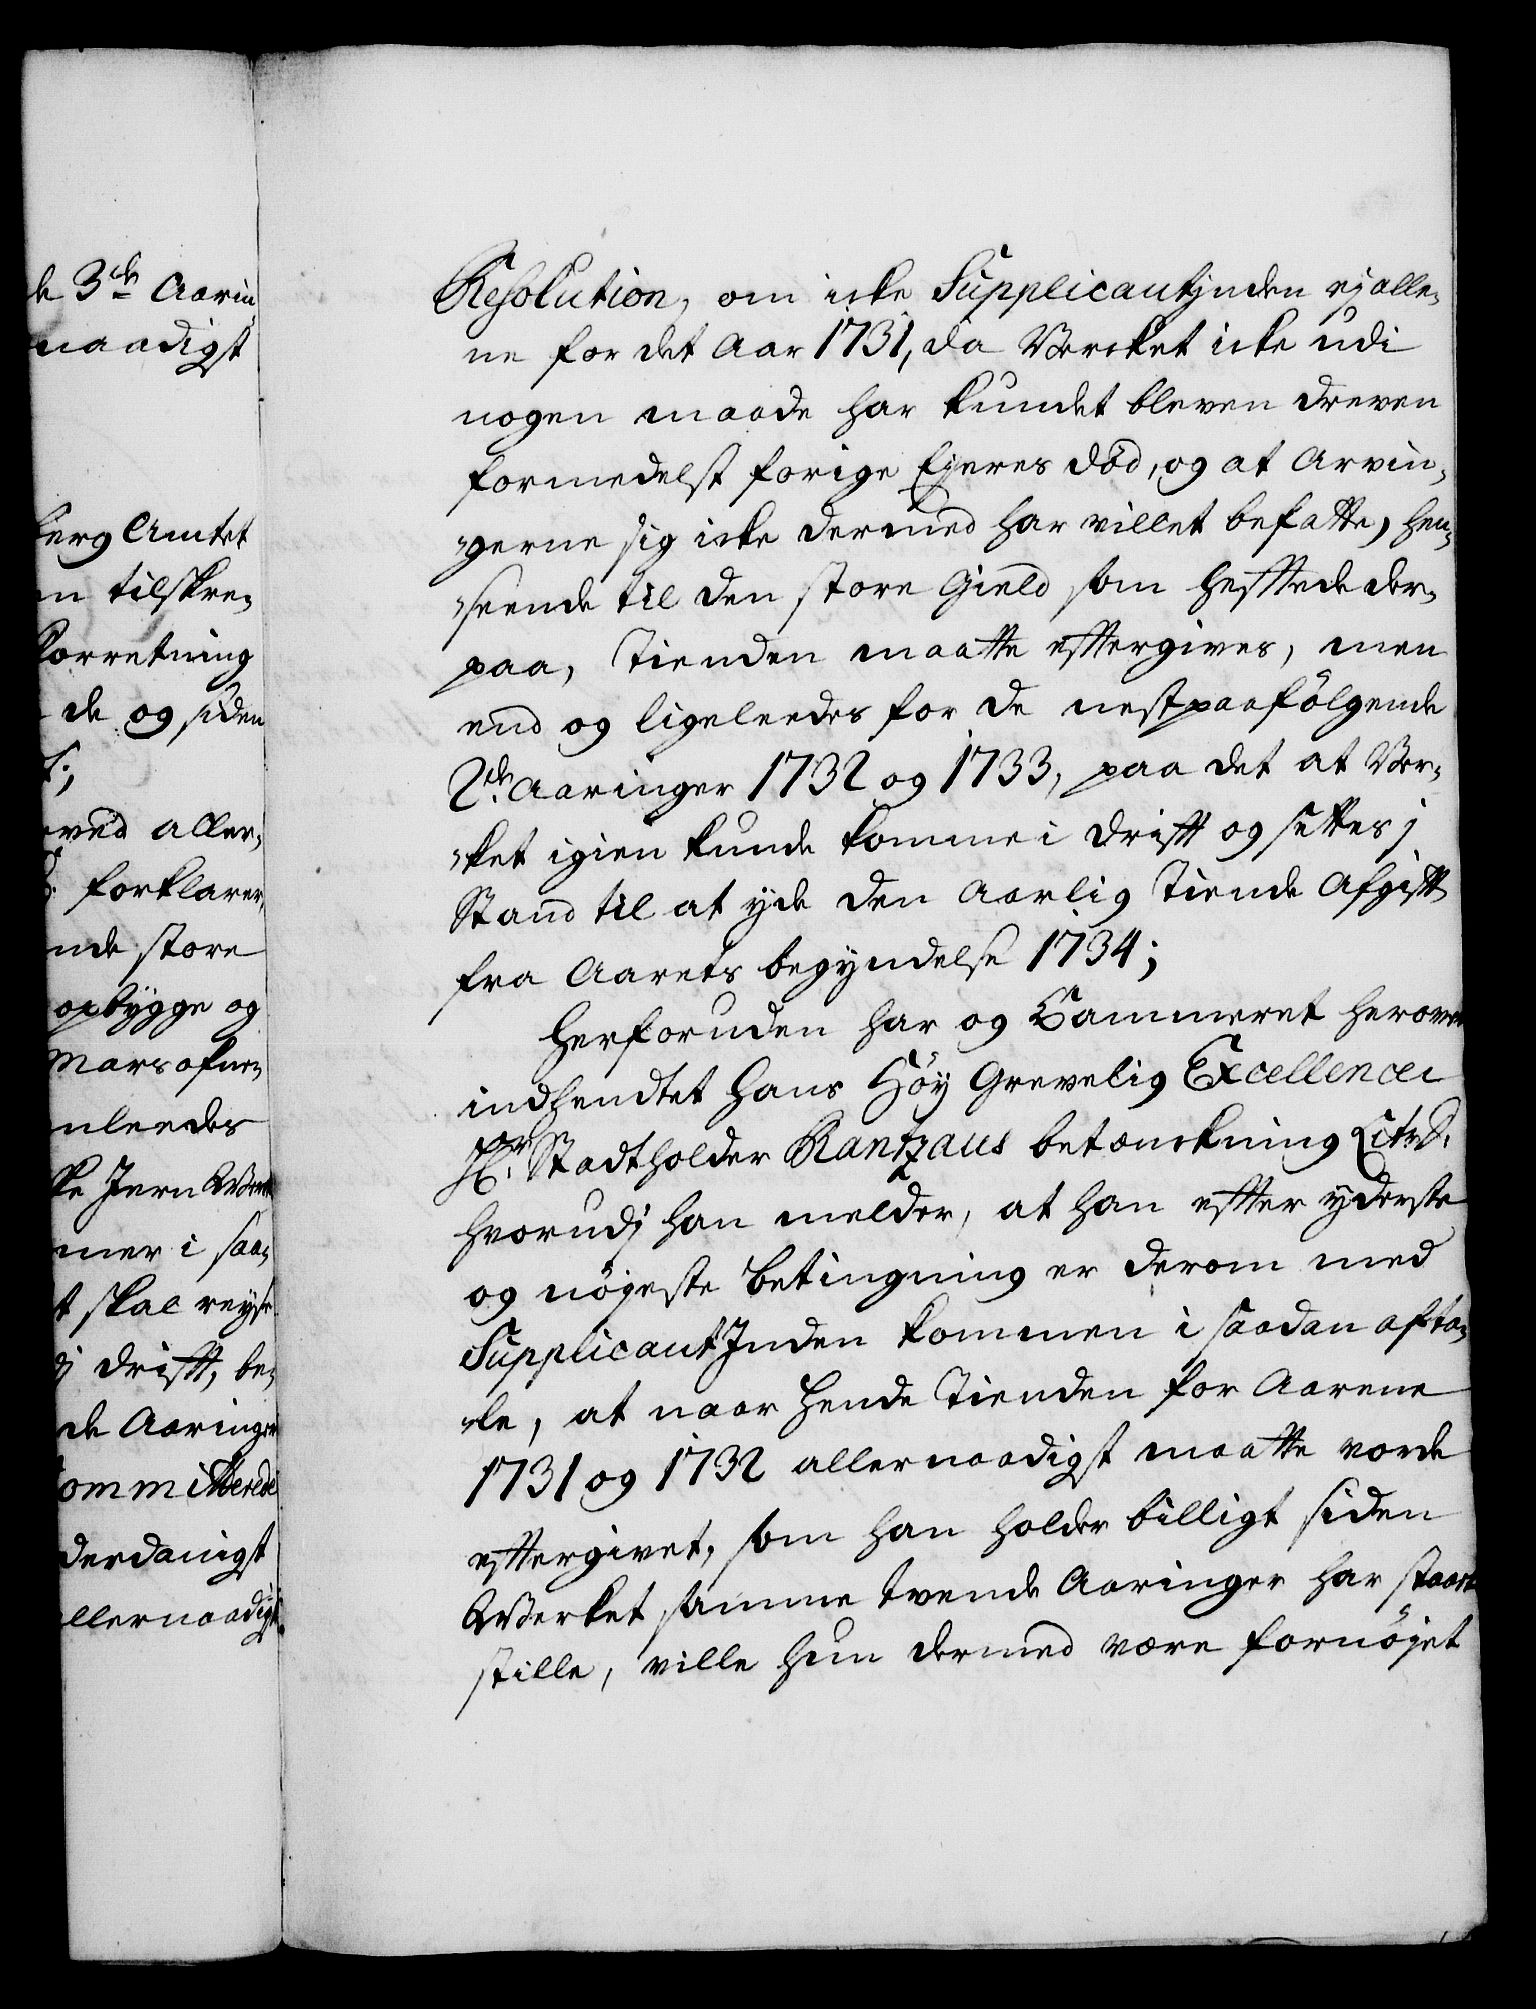 de 3de Aarin,
naadigst
berg Amtet
en tilskre,
Forretning
de og siden
t;
rved aller,
forklarer,
nde store
opbygge og
nleedes
ke Jern Werk
mer i saa,
t skal reyse
j drifft, be,
de Aaringer
Committerede
derdanigst
allernaadigst
Resolution, om icke Supplicantjnden ej alle,
ne for det Aar 1731, da Vercket icke udi
nogen maade har kundet bleven dreven
formedelst forige Ejeres död, og at Arvin,
„gerne sig icke dermed har villet befatte, hen,
„seende til den store Gield som hefftede der,
paa, Tienden maatte efftergives, men
end og ligeleedes for de nestpaafölgende
2de Aaringer 1732 og 1733, paa det at Ver,
„ket igien kunde komme i drifft og settes j
Stand til at yde den Aarlig Tiende Afgifft
fra Aarets begyndelse 1734;
Herforuden har og Cammeret herover
indhendtet Hans Höy Grevelig Excellence
Hr. Stadtholder Rantzaus betænckning Litr: D.
hvorudj han melder, at han effter yderste
og nöyeste betingning er derom med
SupplicantJnden kommen i saadan afta,
„le, at naar Hende Tienden for Aarene
1731 og 1732 allernaadigst maatte vorde
efftergivet, som han holder billigt siden
Werket samme tvende Aaringer har staaet
stille, ville hun dermed være fornöjet